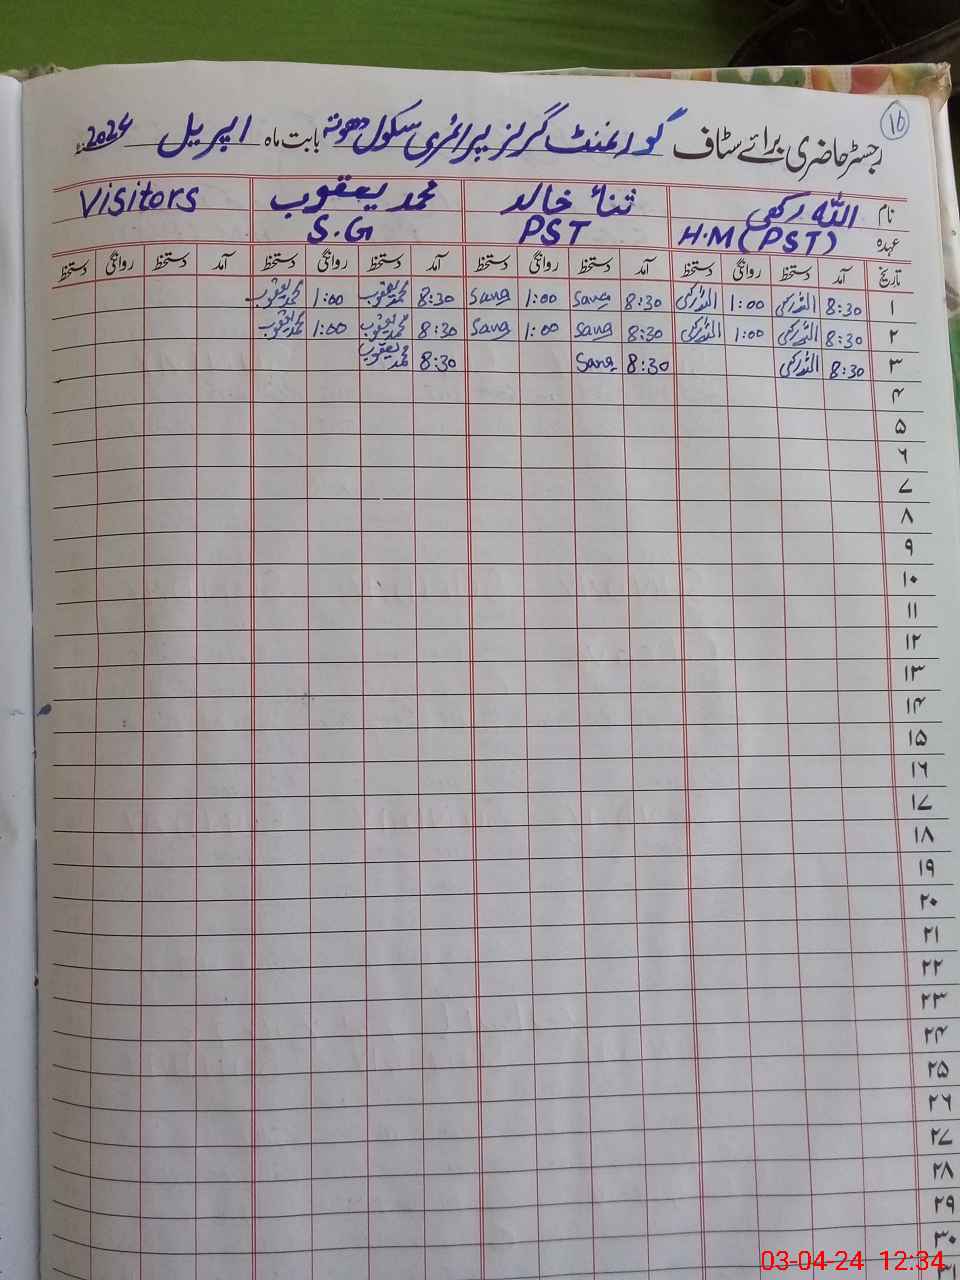 16
رجسٹر حاضری برائے سٹاف گورنمنٹ گرلز پرائمری سکول دھوتہ بابت ماہ اپریل 2024ء
نام اللہ رکھی ثناء خالد محمد یعقوب Visitors
عہدہ H.M (PST) PST S.G
تاریخ آمد دستخط روانگی دستخط آمد دستخط روانگی دستخط آمد دستخط روانگی دستخط آمد دستخط روانگی دستخط
۱ 8:30 اللہ رکھی 1:00 اللہ رکھی 8:30 Sana 1:00 Sana 8:30 محمد یعقوب 1:00 محمد یعقوب
۲ 8:30 اللہ رکھی 1:00 اللہ رکھی 8:30 Sana 1:00 Sana 8:30 محمد یعقوب 1:00 محمد یعقوب
۳ 8:30 اللہ رکھی 8:30 Sana 8:30 محمد یعقوب
۴
۵
۶
۷
۸
۹
۱۰
۱۱
۱۲
۱۳
۱۴
۱۵
۱۶
۱۷
۱۸
۱۹
۲۰
۲۱
۲۲
۲۳
۲۴
۲۵
۲۶
۲۷
۲۸
۲۹
۳۰
۳۱
03-04-24 12:34